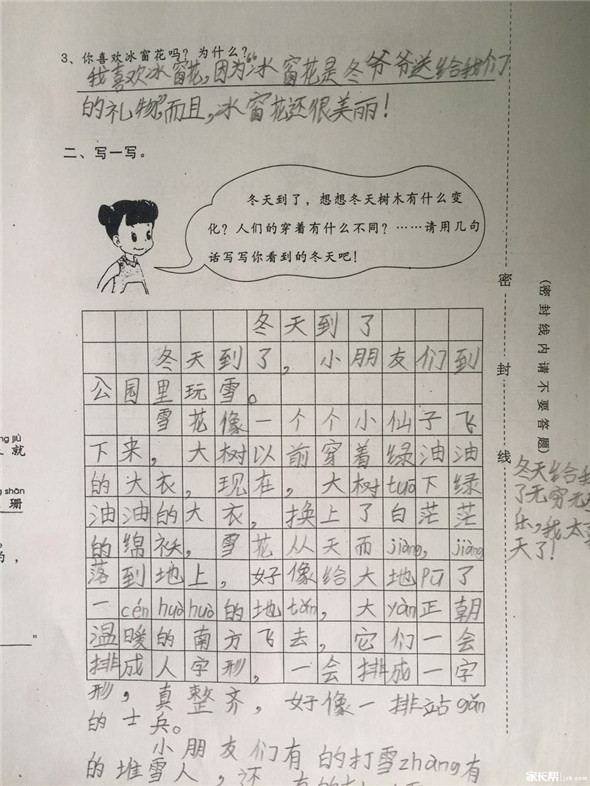 3、你喜欢冰窗花吗?为什么?
我喜欢冰窗花,因为“冰窗花是冬爷爷送给我们
的礼物”而且,冰窗花还很美丽!
二、写一写。
冬天到了,想想冬天树木有什么变
化?人们的穿着有什么不同?……请用几句
话写写你看到的冬天吧!
冬天到了
冬天到了,小朋友们到
公园里玩雪。
雪花像一个个小仙子飞
下来,大树以前穿着绿油油
的大衣,现在,大树tuō下绿
油油的大衣,换上了白茫茫
的绵袄,雪花从天而jiàng,jiàng
落到地上,好像给大地pū了
一cén huā huā的地tǎn,大yàn正朝
温暖的南方飞去,它们一会
排成人字形,一会排成一字
形,真整齐,好像一排站gǎn
的士兵。
小朋友们有的打雪zhàng有
的堆雪人,还有的
密
封
线
(密封线内请不要答题)
冬天给我
了无穷无
乐,我太
天了!
ng jiù
就
ng shān
珊
家长帮 jzb.com